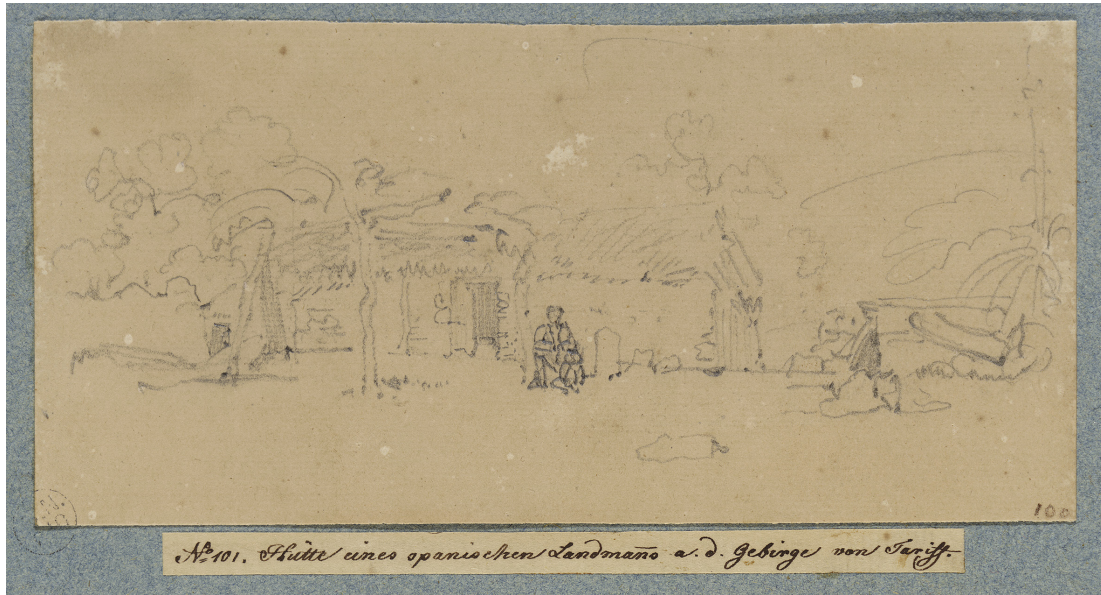 100
No 101. Hütte eines spanischen Landmanns a. d. Gebirge von Tariff.